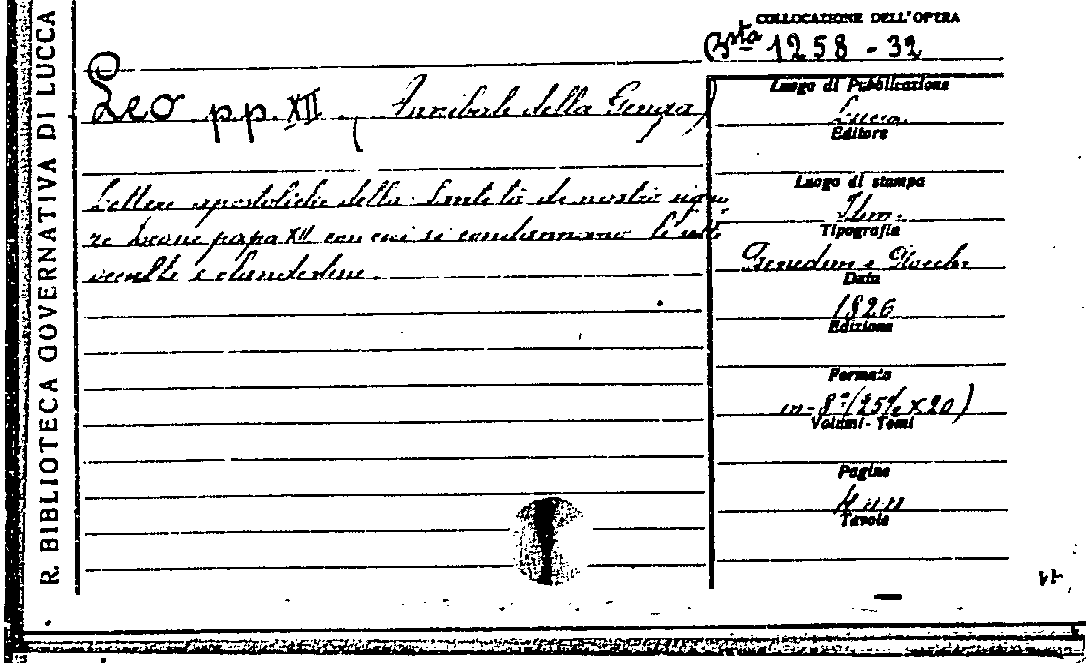 R. BIBLIOTECA GOVERNATIVA DI LUCCA
COLLOCAZIONE DELL'OPERA
Bsta 1258-32
Leo pp. XII (Annibale della Genga)
Lettere apostoliche della Santità di nostro signo
re Leone papa XII con cui si condannano le sette
occulte e clandestine.
Luogo di Pubblicazione
Lucca
Editore
Luogo di stampa
Idem.
Tipografia
Benedini e Rocchi
Data
1826
Edizione
Formato
in-8° (25½ x 20)
Volumi-Tomi
Pagine
Tavole